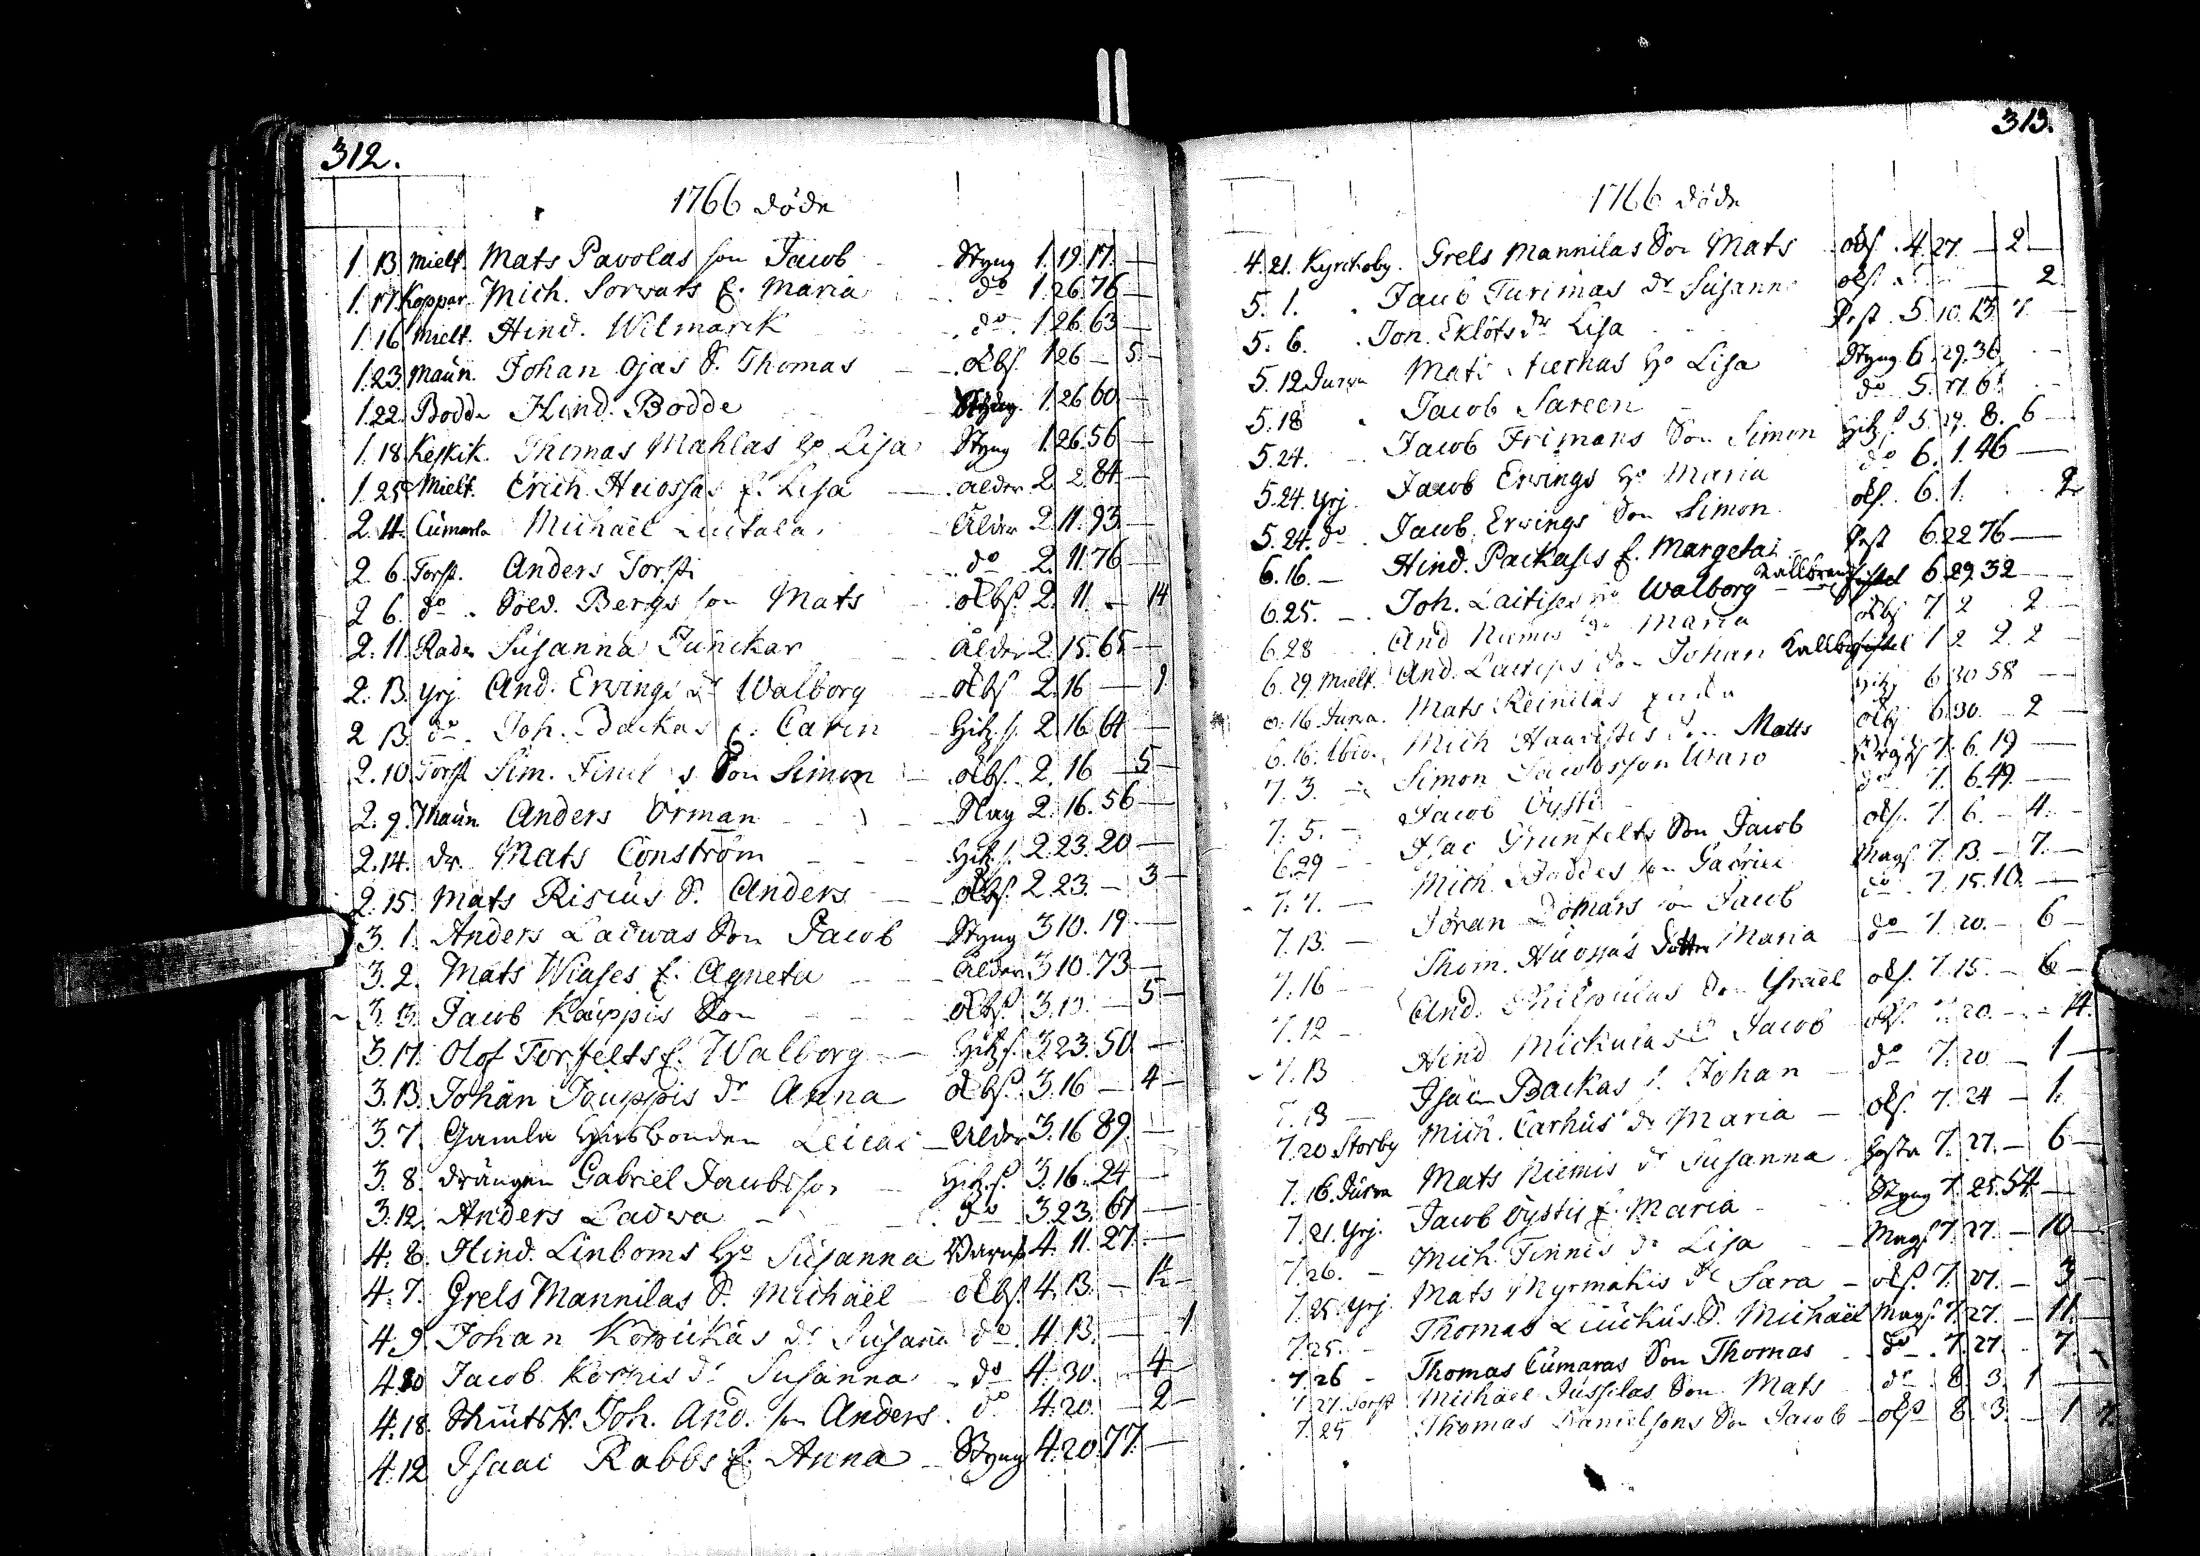 312.
1766 döde
1. 13 Mielt. Mats Pavolas son Jacob Styng 1. 19. 17. —
1. 17. Koppar. Mich. Sorvars E. Maria do 1. 26. 76 —
1. 16 Mielt. Hind. Wilmarck do. 1. 26. 63 —
1. 23. Maun. Johan Ojas S. Thomas — Obs. 1 26 — 5. —
1. 22. Bodde Hind. Bodde Styng. 1. 26 60 —
1. 18 Keskik. Thomas Mahlas Ho Lisa Styng 1. 26. 56 —
1. 25 Mielt. Erich. Huossas E. Lisa — alder. 2. 2. 84 —
2. 4. Cumarla Michaël Ålder 2. 11. 93. —
2. 6. Torst. Anders Torsti do 2. 11. 76 —
2 6. do. Sold. Bergs son Mats Obs. 2. 11. — 14
2. 11. Rada Susanna Junckar Ålder 2. 15. 65 —
2. 13. Yrj. And. Ervings dr Walborg — Obs. 2. 16 — 1
2 13. do. Joh. Backas E. Carin Hitz. s. 2. 16. 64 —
2. 10. Torst Sim. Son Simon — Obs. 2. 16 — 5 —
2. 9. Maun. Anders Örman — Slag 2. 16. 56 —
2. 14. dr. Mats Conström — Hitz. s. 2. 23. 20 —
2. 15. Mats Risius S. Anders — Obs. 2 23. — 3 —
3. 1. Anders Ladwas Son Jacob Styng 3 10. 19. —
3. 2. Mats Wiases E. Agneta — Ålder 3. 10. 73 —
3. 13. Jacob Kauppis Son — Obs. 3. 13. — 5 —
3. 17. Olof Torfelts E. Walborg — Hitz. s. 3. 23. 50 —
3. 13. Johan Jouppis dr Anna Obs. 3. 16 — 4 —
3. 7. Gamla Husbonden — Ålder 3. 16 89. —
3. 8. drängen Gabriel Jacobsson — Hitz. s. 3. 16. 24. —
3. 12. Anders Ladwa — do 3. 23. 67 —
4. 8. Hind. Linboms Ho Susanna 4. 11. 27. —
4. 7. Grels Mannilas S. Michaël Obs. 4. 13. — 1½ —
4. 9. Johan dr Susan do. 4. 13. — 1.
4. 20 Jacob Korpis dr Susanna — do 4. 30. — 4 —
4. 18. Joh. And. son Anders. do 4. 20. — 2 —
4. 12 Isaac Rabbs E. Anna — Styng 4. 20. 77. —
313.
1766 döde
4. 21. Kyrckoby. Grels Mannilas Son Mats Obs. 4. 27. — 2 —
5. 1. Jacob Turimas dr Susanna obs. — 2
5. 6. Jon. Eklöfs dr Lisa Pest. 5. 10. 13. 7. —
5. 12 Jurva Mats Ho Lisa Styng 6. 29. 36 —
5. 18 Jacob Sareen do 5.
5. 24. Jacob Frimans Son Simon Hitz. s. 5. 29. 8. 6 —
5. 24. Yrj. Jacob Ervings Ho Maria do 6. 1. 46 —
5. 24. do. Jacob. Ervings Son Simon obs. 6. 1. 2
6. 16. — Hind. Packases E. Margeta Pest 6. 22 76 —
6. 25. — Joh. Laitises Ho Walborg — 6. 29. 32 —
6. 28 And Niemis dr Maria Obs 7 2 2 —
6. 29. Mielt. And. Laitises Son Johan 2 2 —
6. 16. Jurva. Mats Reinilas Hitz 6. 30 58 —
6. 16. Mich Son Matts Obs 6. 30. — 2 —
7. 3. — Simon Jacobsson Waro 7. 6. 19 —
7. 5. — Jacob Öysti do 7. 6. 49. —
6. 29 — Isac Grunfelts Son Jacob Obs. 7. 6. — 4. —
7. 7. — Mich. Boddes son Gabriel Mags. 7. 13. — 7. —
7. 13. — Johan son Jacob do. 7. 15. 10. —
7. 16 — Thom. Huossas Dotter Maria — do 7. 20. — 6 —
7. 12 — And. Son Israël obs. 7. 15. — 6 —
7. 13 Hind Mickulas Jacob — obs. 7. 20. — 14.
7. 13 — Isac Backas S. Johan — do 7. 20 — 1 —
7. 20 Storby Mich. Carhus dr Maria — obs. 7. 24 — 1.
7. 16. Jurva Mats Niemis dr Susanna Hosta 7. 27. — 6 —
7. 21. Yrj. Jacob Öystis E. Maria Styng 7. 25. 54. —
7. 26. — Mich. Finnes dr Lisa — Mags 7. 27. — 10 —
7. 25. Yrj. Mats Myrmäkis dr Sara — obs. 7. 27. — 3 —
7. 25. — Thomas S. Michael Mags. 7. 27. — 11. —
7. 26 — Thomas Cumaras Son Thomas do. 7. 27. 7.
7. 27. Torst Michael Jussilas Son Mats do. 8. 3. 1 —
7. 25 Thomas Danielsons Son Jacob — obs 8. 3. — 1